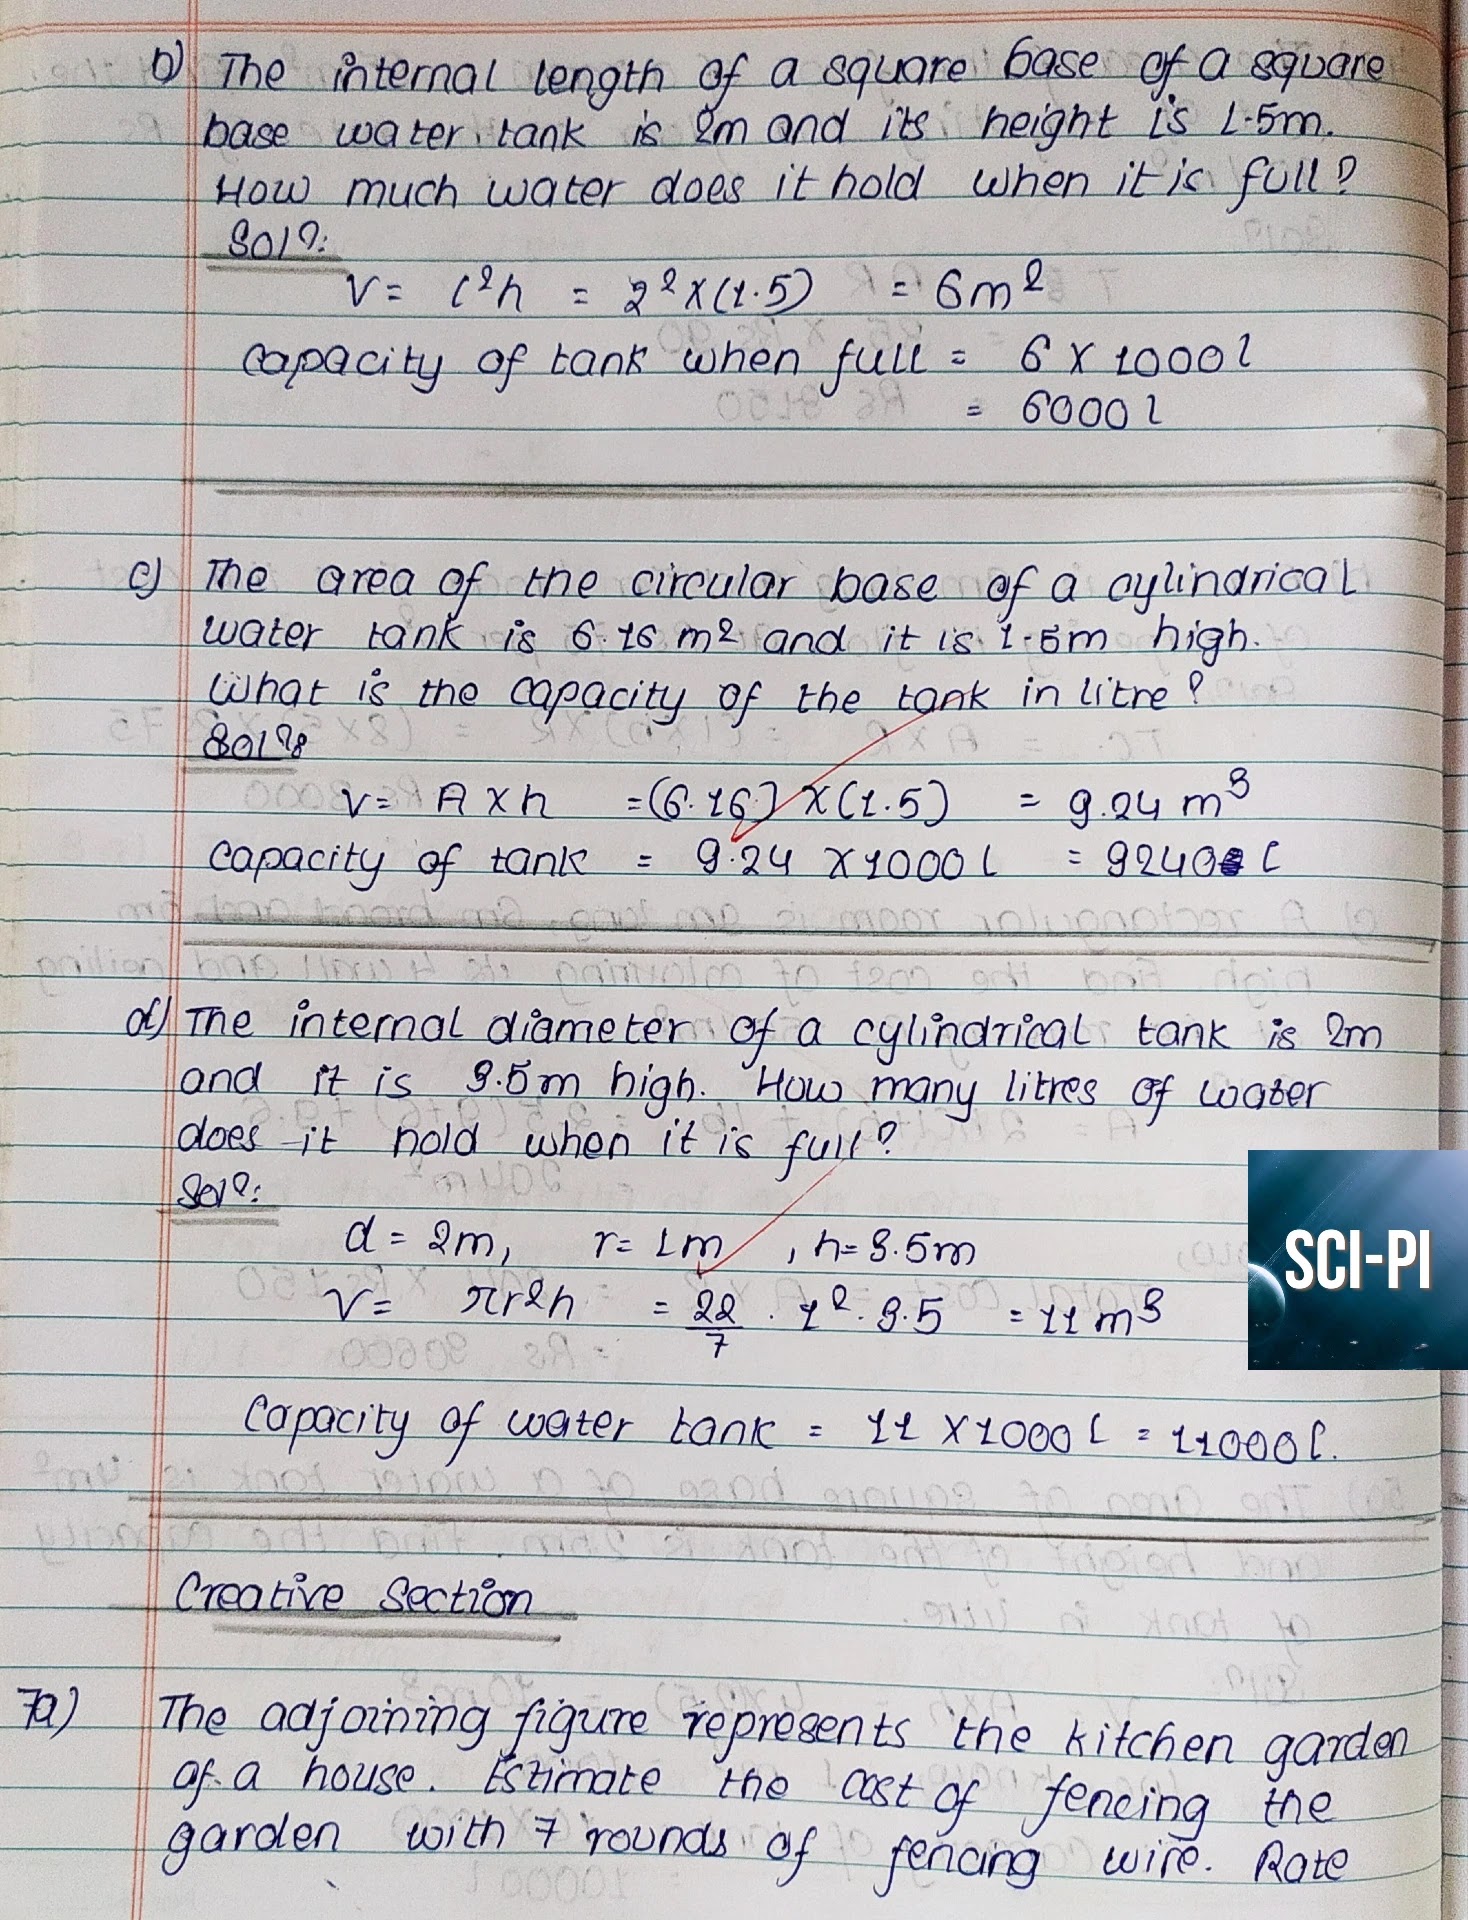 b) The internal length of a square base of a square
base water tank is 2m and its height is 1.5m.
How much water does it hold when it is full?
Solⁿ:
V = l²h = 2² × (1.5) = 6m²
capacity of tank when full = 6 × 1000 l
= 6000 l
c) The area of the circular base of a cylindrical
water tank is 6.16 m² and it is 1.5m high.
What is the capacity of the tank in litre?
Solⁿ:
V = A × h = (6.16) × (1.5) = 9.24 m³
capacity of tank = 9.24 × 1000 l = 9240 l
d) The internal diameter of a cylindrical tank is 2m
and it is 3.5m high. How many litres of water
does it hold when it is full?
Solⁿ:
d = 2m, r = 1m, h = 3.5m
V = πr²h = 22/7 . 1² . 3.5 = 11 m³
SCI-PI
Capacity of water tank = 11 × 1000 l = 11000 l.
Creative Section
7a) The adjoining figure represents the kitchen garden
of a house. Estimate the cost of fencing the
garden with 7 rounds of fencing wire. Rate